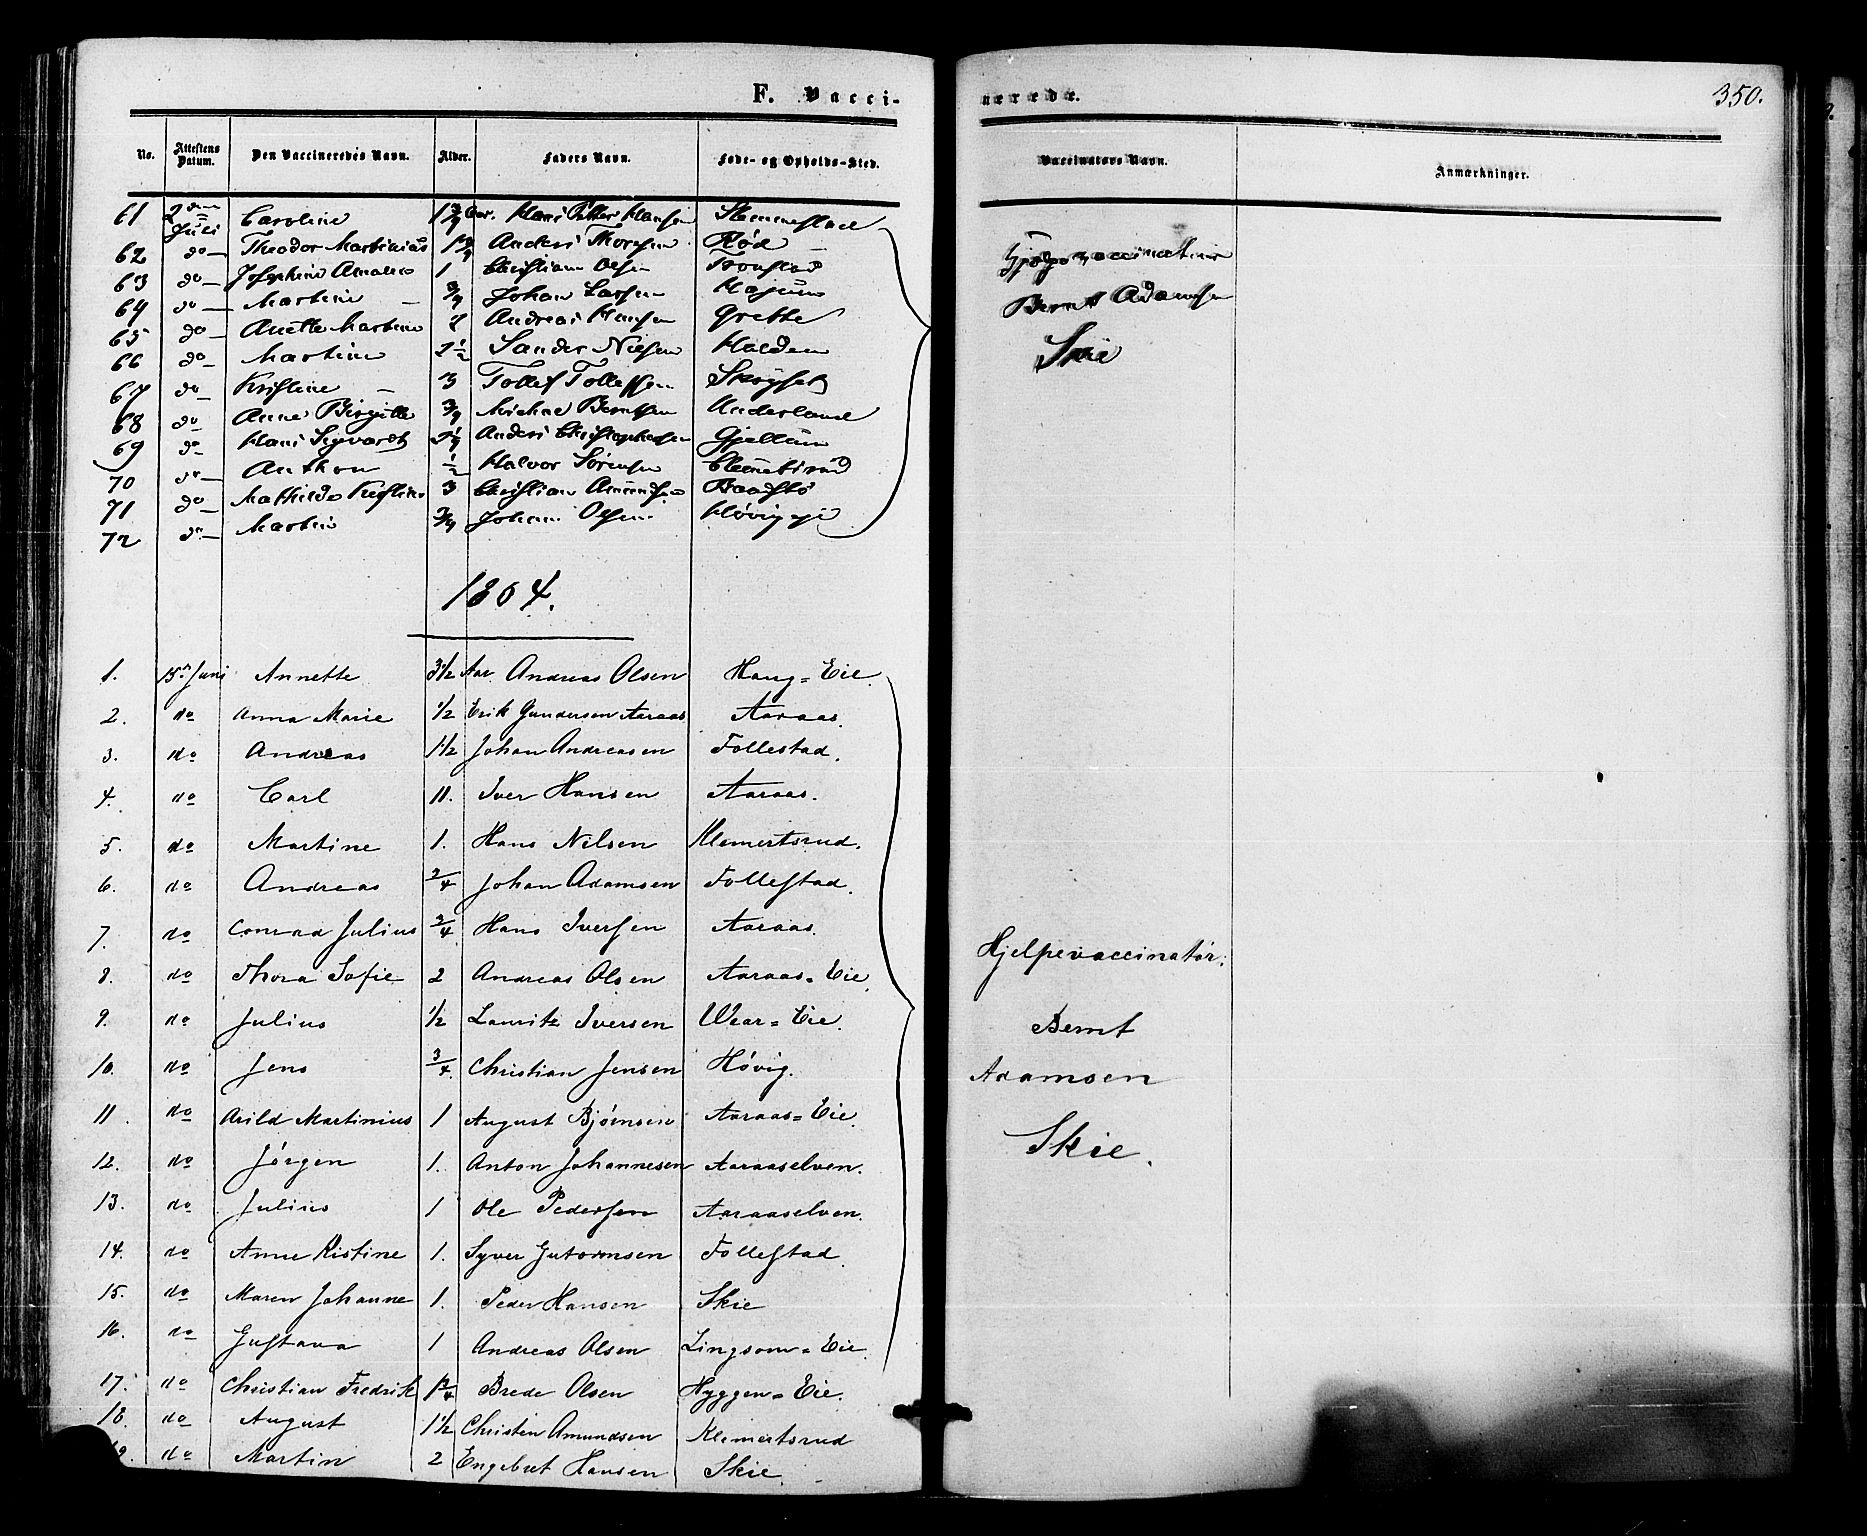 F. Vacci-
nerede.
350.
No. Attestens Datum. Den Vaccineredes Navn. Alder. Faders Navn. Føde- og Opholds-Sted.
Vaccinators Navn. Anmærkninger.
61 2den Juli Caroline 1 3/4 Aar. Hans Petter Hansen
62 do Theodor Martinius Anders Thorsen Rød
63 do Josephine Amalie 1 Christian Olsen
64 do Martine 3/4 Johan Larsen
65 do Anette Martine 2 Andreas Hansen Grette
66 do Martine 2 1/2 Sander Nilsen
67 do Kristine 3 Tollef Tollefsen
68 do Anne Birgitte 3/4 Berntsen Underland
69 do Hans Sigvardt Anders Christophersen Gjellum
70 do Anthon 1/2 Halvor Sørensen
71 do Mathilde Kristine 3 Christian Amundsen
72 do Martin 3/4 Johan Olsen
Hjelpevaccinatør
Bernt Adamsen
Skie
1864.
1. 15de Juni Annette 3 1/2 Aar Andreas Olsen Haug=Eie.
2. do Anna Marie 1/2 Erik Gundersen Aaraas Aaraas.
3. do Andreas 1 1/2 Johan Andreasen Follestad.
4. do Carl 11. Iver Hansen Aaraas.
5. do Martine 1. Hans Nilsen Klemertsrud.
6. do Andreas 3/4 Johan Adamsen Follestad.
7. do Conrad Julius 3/4 Hans Iversen Aaraas.
8. do Thora Sofie 2 Andreas Olsen Aaraas=Eie.
9. do Julius 1/2 Lauritz Iversen Wear=Eie.
10. do Jens 3/4 Christian Jensen Høvig.
11. do Arild Martinius 1 August Bjørnsen Aaraas=Eie.
12. do Jørgen 1. Anton Johannesen Aaraaselven.
13. do Julius 1 Ole Pedersen Aaraaselven.
14. do Anne Kistine 1. Syver Gutormsen Follestad.
15. do Maren Johanne 1. Peder Hansen Skie
16. do Gustava 1 Andreas Olsen Lingsom=Eie.
17. do Christian Fredrik 1 3/4 Brede Olsen Hyggen=Eie.
18. do August 1 1/2 Christen Amundsen Klemertsrud
19. do Martin 2 Engebret Hansen Skie.
Hjelpevaccinatør:
Bernt
Adamsen
Skie.